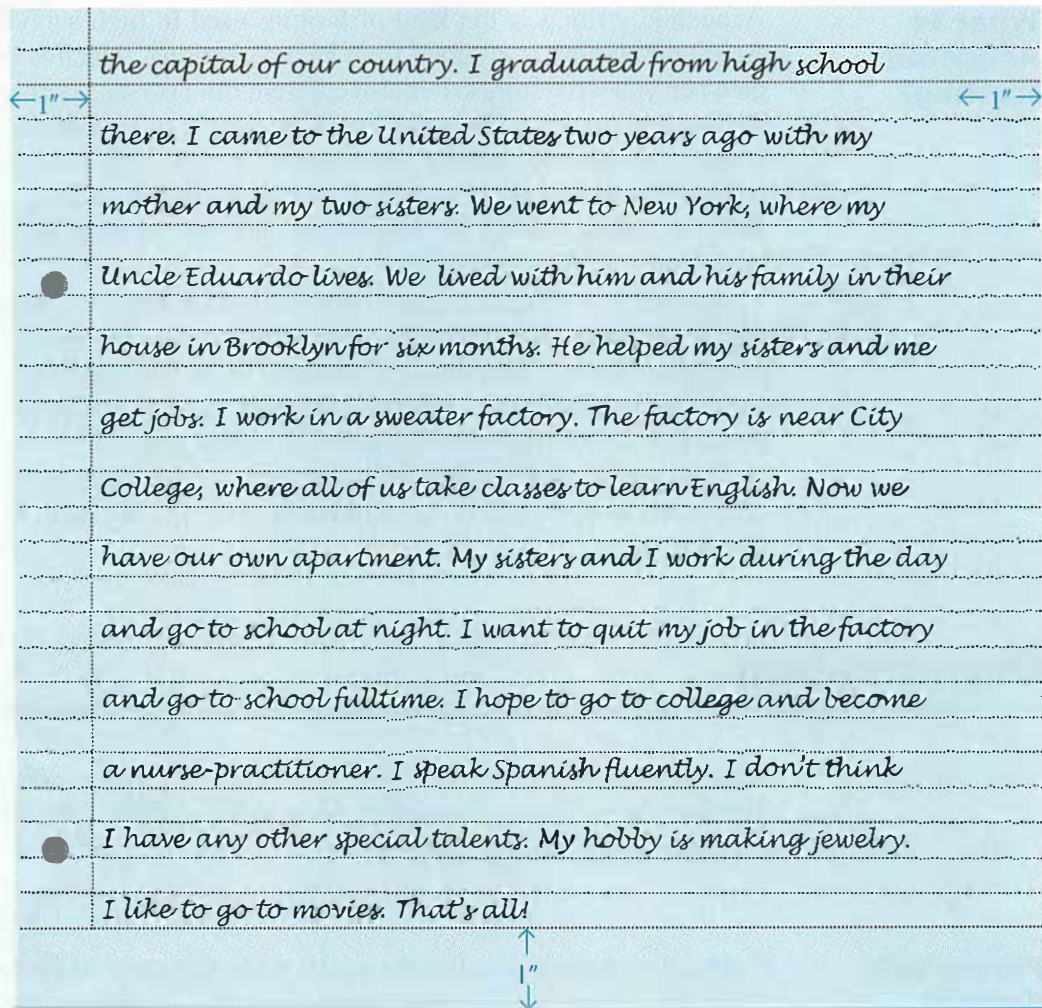 the capital of our country. I graduated from high school
←1"→ ←1"→
there. I came to the United States two years ago with my
mother and my two sisters. We went to New York, where my
Uncle Eduardo lives. We lived with him and his family in their
house in Brooklyn for six months. He helped my sisters and me
get jobs. I work in a sweater factory. The factory is near City
College, where all of us take classes to learn English. Now we
have our own apartment. My sisters and I work during the day
and go to school at night. I want to quit my job in the factory
and go to school fulltime. I hope to go to college and become
a nurse-practitioner. I speak Spanish fluently. I don't think
I have any other special talents. My hobby is making jewelry.
I like to go to movies. That's all!
1"